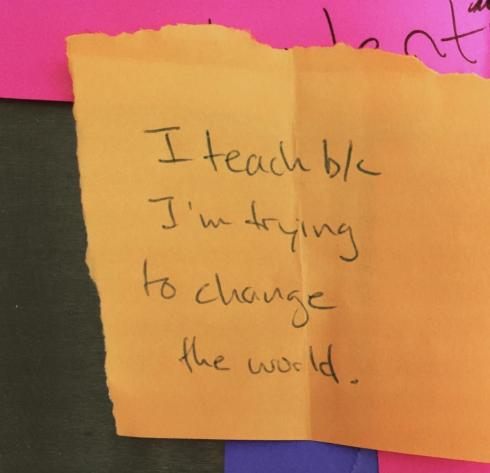 I teach b/c
I'm trying
to change
the world.